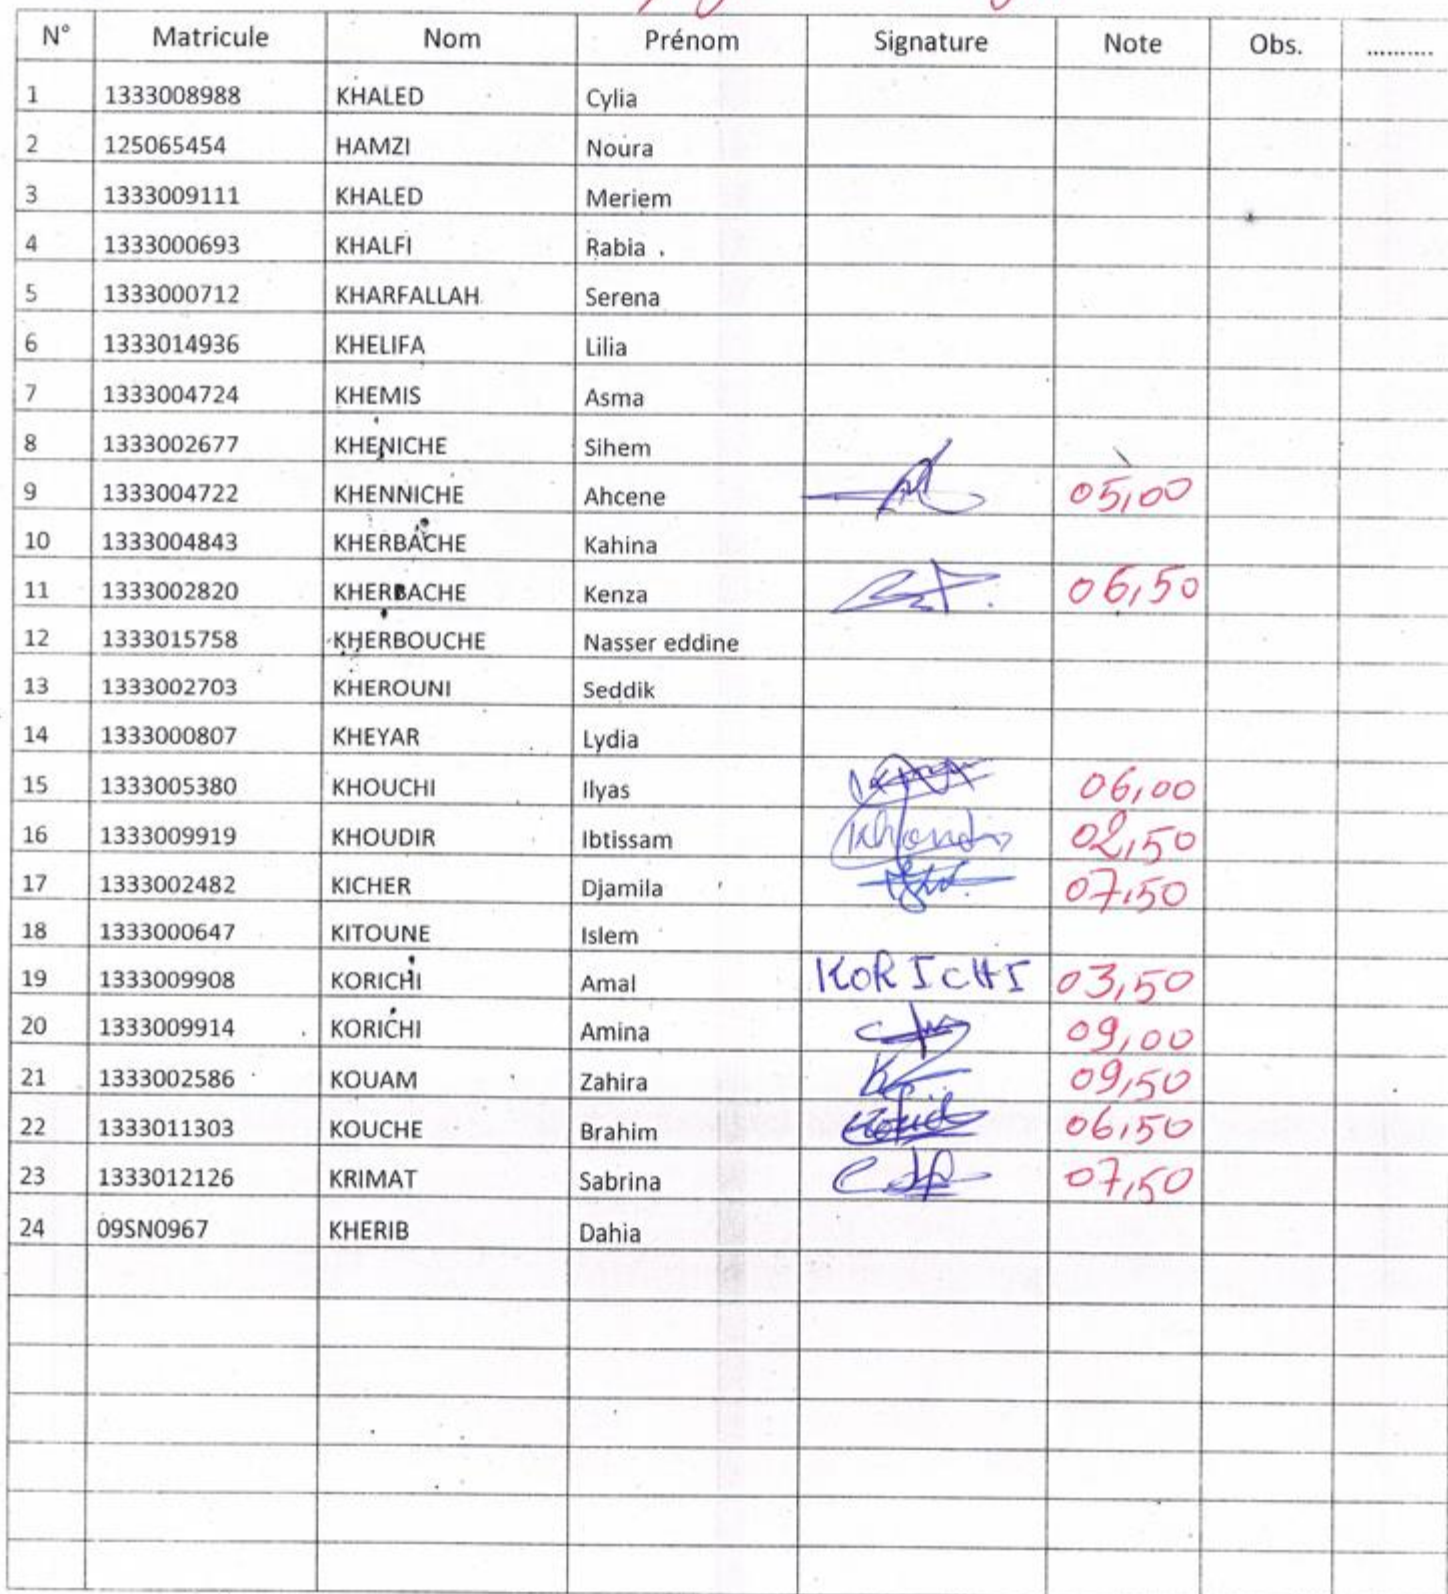 N° Matricule Nom Prénom Signature Note Obs. ..........
1 1333008988 KHALED Cylia
2 125065454 HAMZI Noura
3 1333009111 KHALED Meriem
4 1333000693 KHALFI Rabia
5 1333000712 KHARFALLAH Serena
6 1333014936 KHELIFA Lilia
7 1333004724 KHEMIS Asma
8 1333002677 KHENICHE Sihem
9 1333004722 KHENNICHE Ahcene 05,00
10 1333004843 KHERBACHE Kahina
11 1333002820 KHERBACHE Kenza 06,50
12 1333015758 KHERBOUCHE Nasser eddine
13 1333002703 KHEROUNI Seddik
14 1333000807 KHEYAR Lydia
15 1333005380 KHOUCHI Ilyas 06,00
16 1333009919 KHOUDIR Ibtissam 02,50
17 1333002482 KICHER Djamila 07,50
18 1333000647 KITOUNE Islem
19 1333009908 KORICHI Amal KORICHI 03,50
20 1333009914 KORICHI Amina 09,00
21 1333002586 KOUAM Zahira 09,50
22 1333011303 KOUCHE Brahim 06,50
23 1333012126 KRIMAT Sabrina 07,50
24 09SN0967 KHERIB Dahia